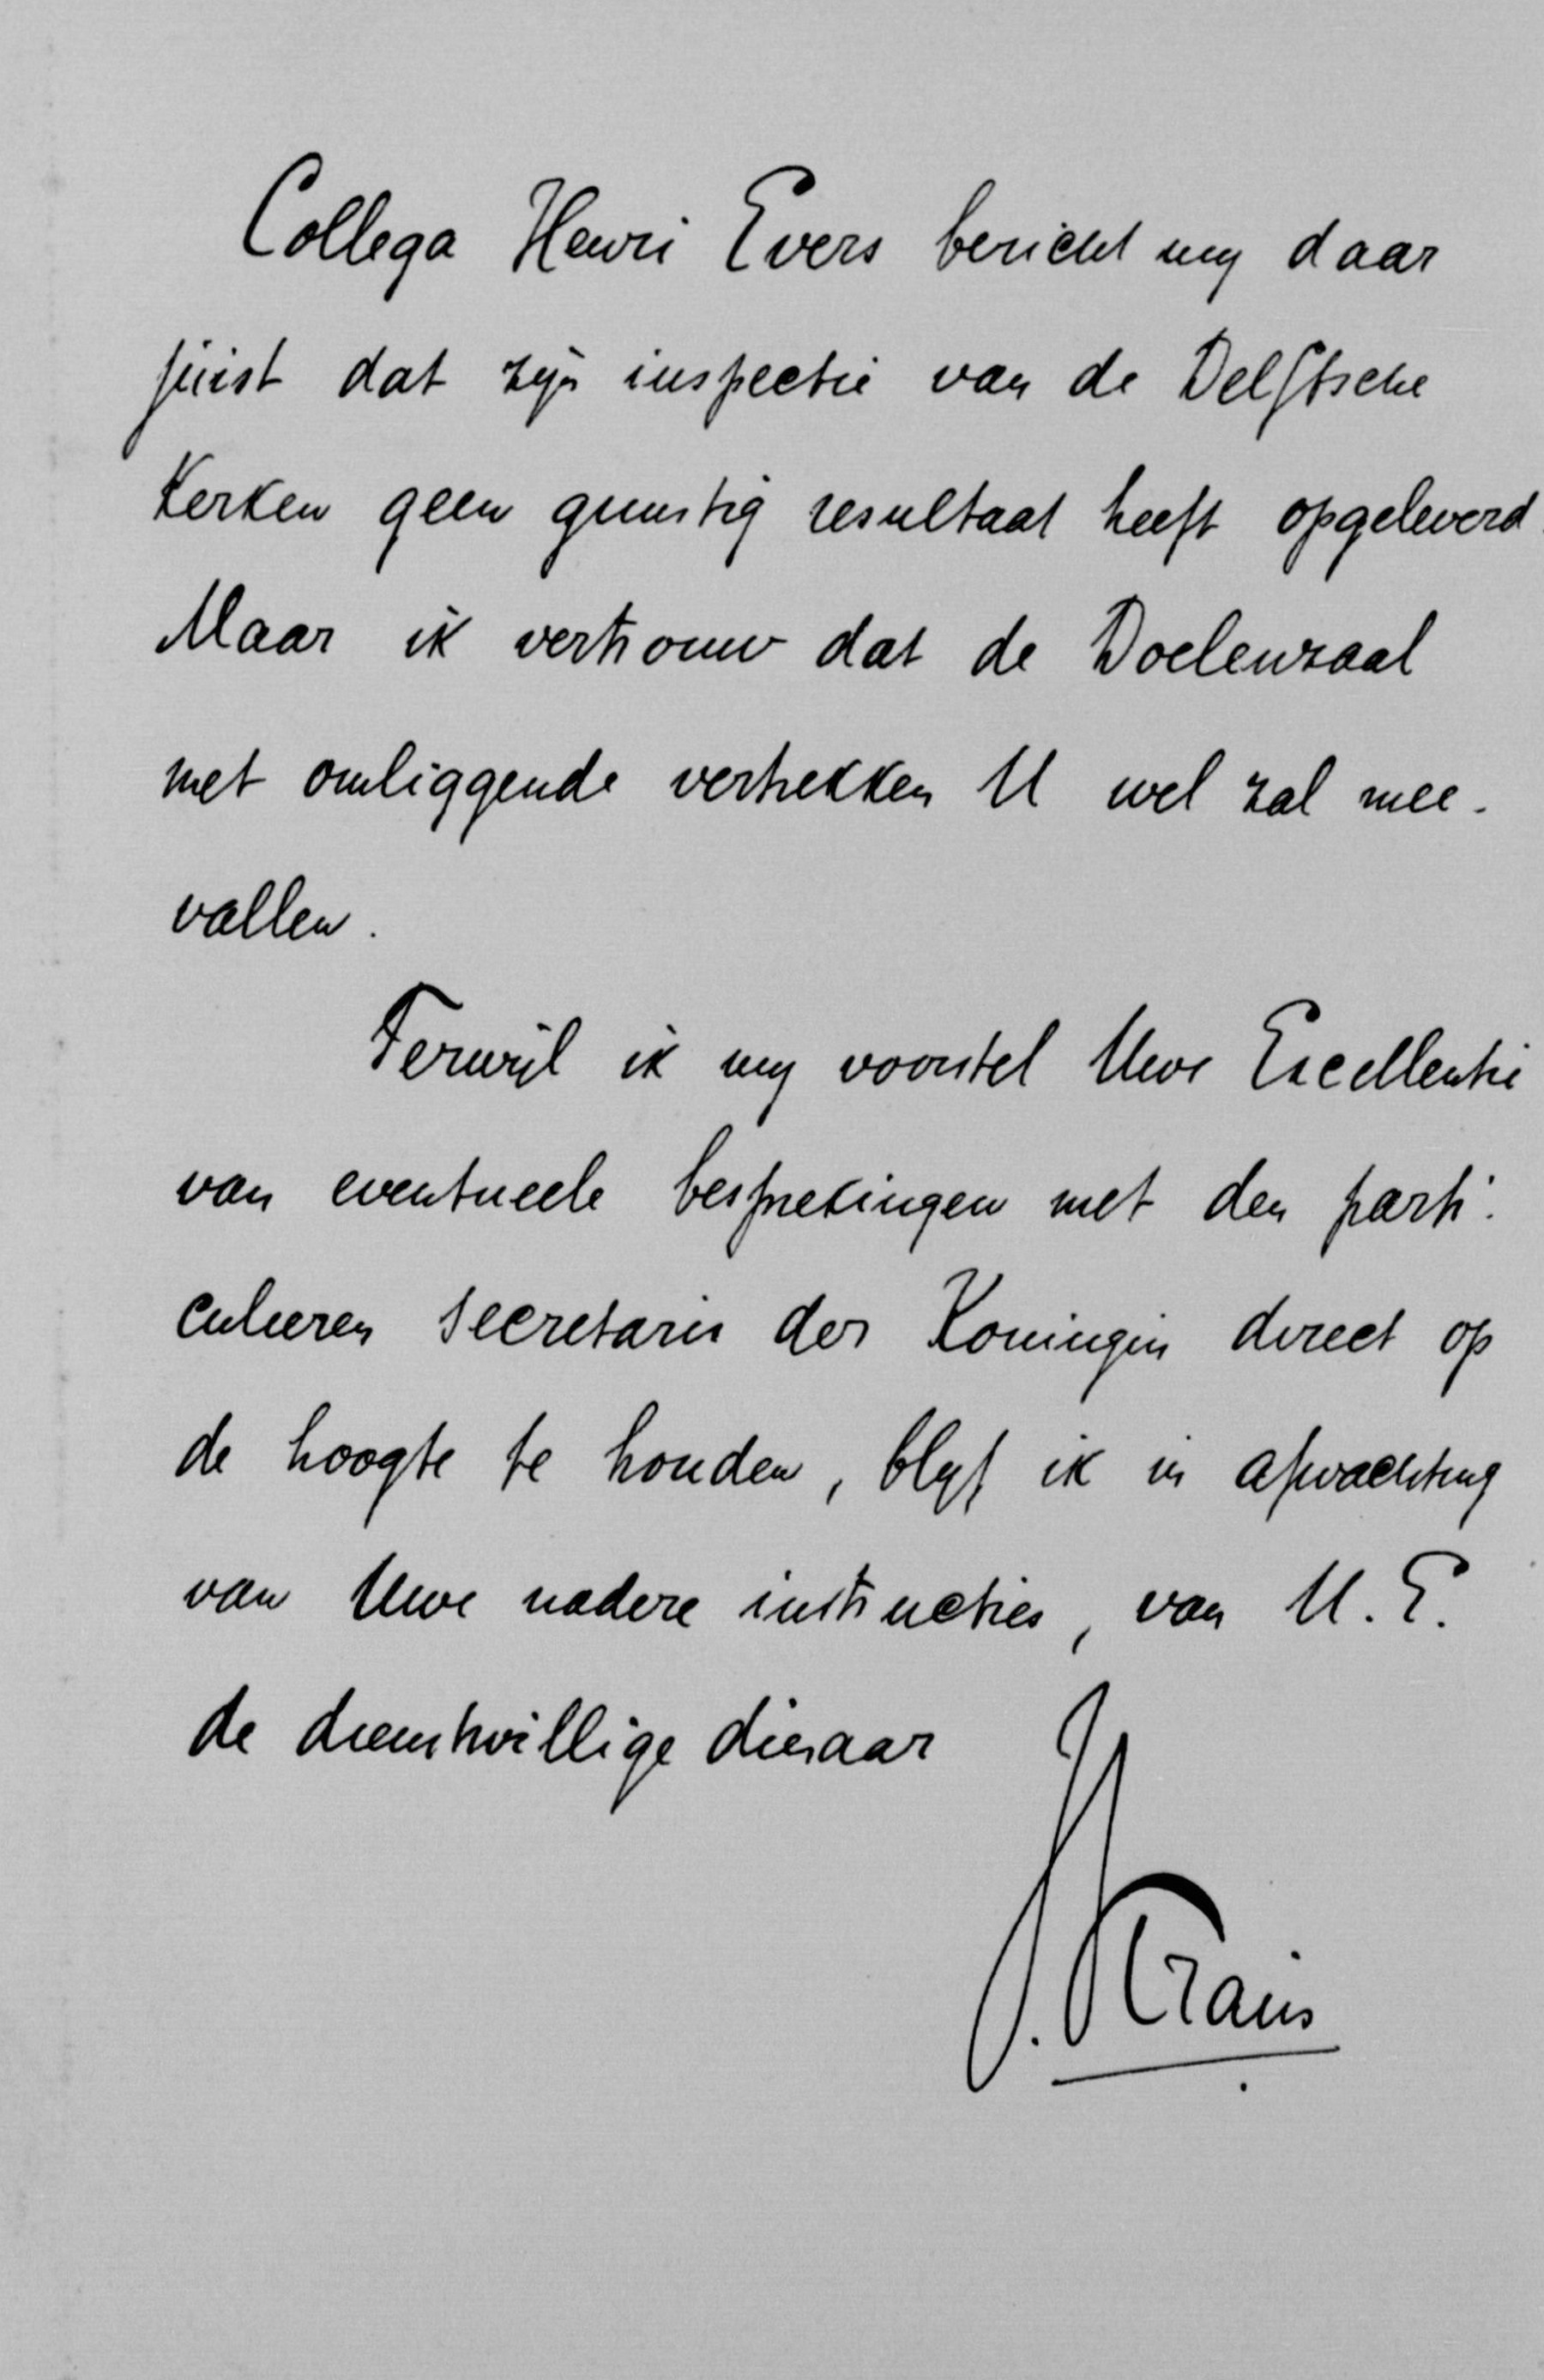 Collega Henri Evers bericht mij daar
juist dat zijn inspectie van de Delftsche
Kerken geen gunstig resultaat heeft opgeleverd.
Maar ik vertrouw dat de Doelenzaal
met omliggende vertrekken U wel zal mee-
vallen.
Terwijl ik mij voorstel Uwe Excellentie
van eventueele besprekingen met den parti-
culieren secretaris der Koningin direct op
de hoogte te houden, blijf ik in afwachting
van Uwe nadere instructies, van U.E.
de dienstwillige dienaar
J. Kraus